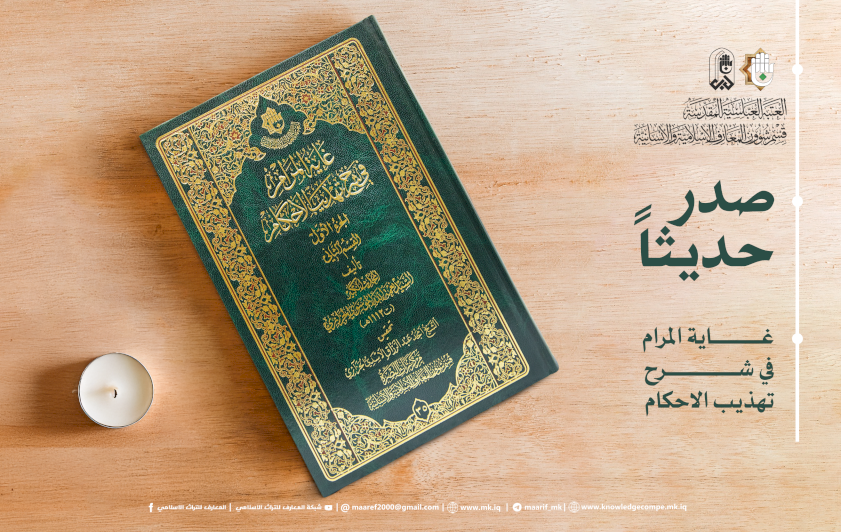 العتبة العباسية المقدسة
قسم شؤون المعارف الإسلامية والإنسانية
صدر
حديثاً
غـــاية المرام
في شــــرح
تهذيب الاحكام
غاية المرام
في شرح تهذيب الأحكام
الجزء الأول
القسم الثاني
تأليف
(ت١١١٢هـ)
تحقيق
٣٥
شبكة المعارف للتراث الاسلامي | المعارف للتراث الاسلامي | @ maaref2000@gmail.com | www.mk.iq | maarif_mk | www.knowledgecomps.mk.iq